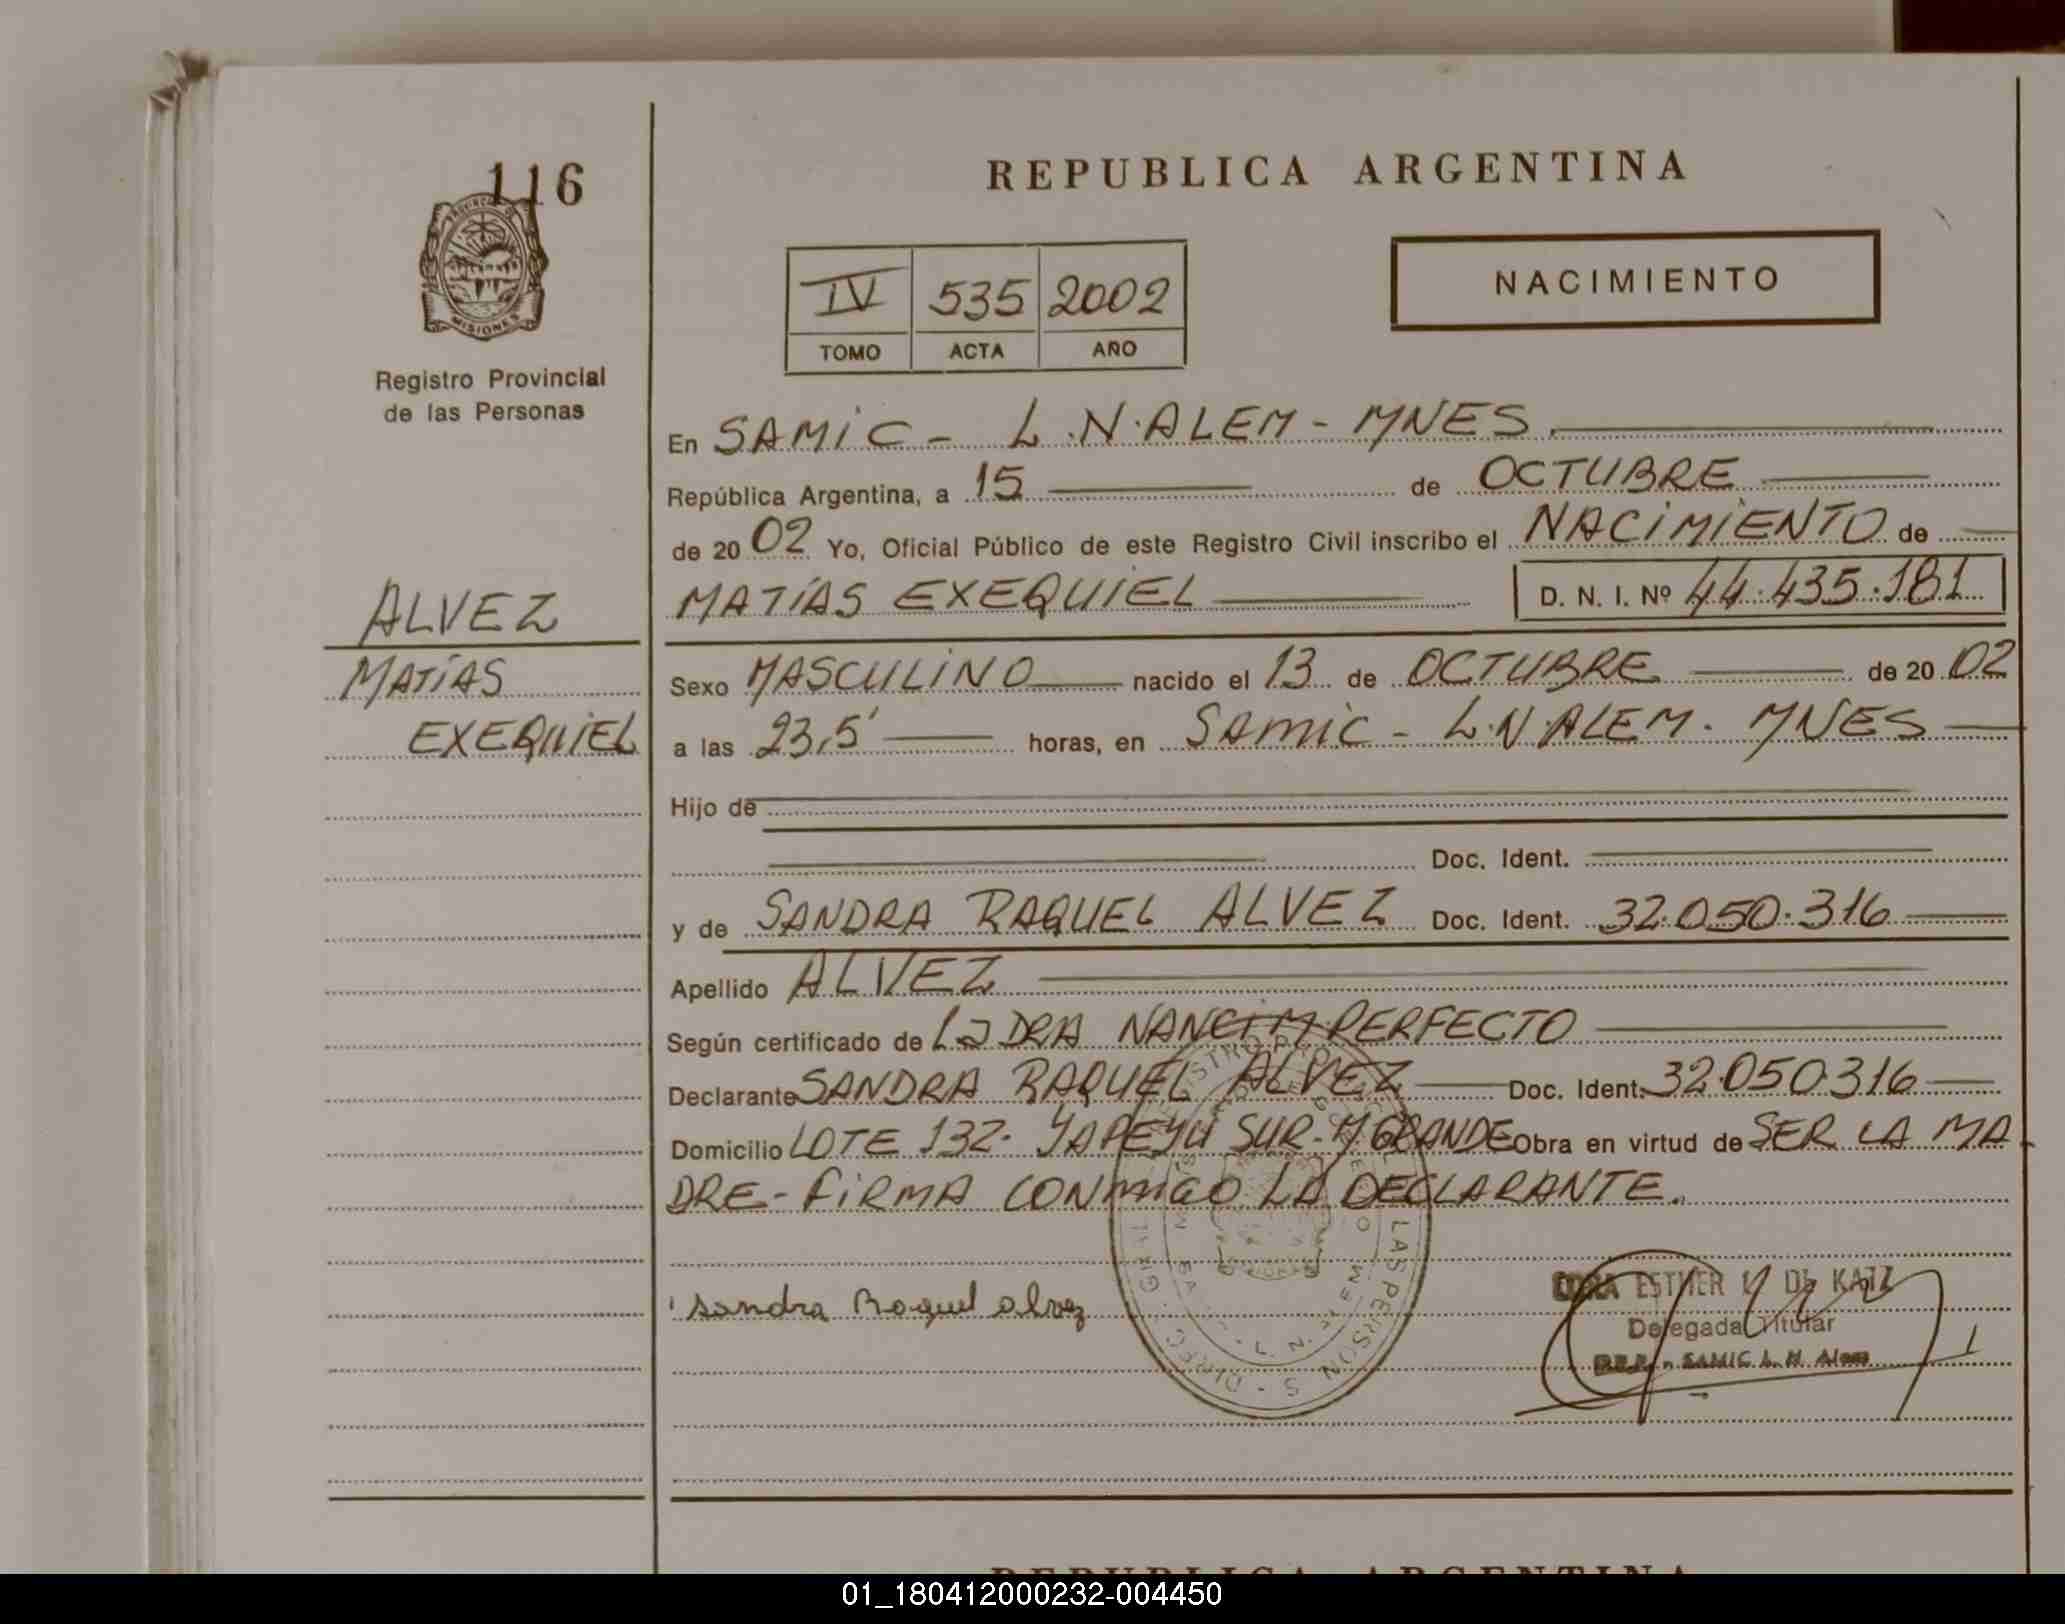 116
REPUBLICA ARGENTINA
NACIMIENTO
IV 535 2002
TOMO ACTA AÑO
PROVINCIA DE
MISIONES
Registro Provincial
de las Personas
En SAMIC - L.N.ALEM - MNES.
República Argentina, a 15 de OCTUBRE
de 20 02 Yo, Oficial Público de este Registro Civil inscribo el NACIMIENTO de
MATÍAS EXEQUIEL D. N. I. Nº 44.435.181
ALVEZ
MATÍAS
EXEQUIEL
Sexo MASCULINO nacido el 13 de OCTUBRE de 20 02
a las 23,5' horas, en SAMIC - L.N.ALEM. MNES
Hijo de
Doc. Ident.
y de SANDRA RAQUEL ALVEZ Doc. Ident. 32.050.316
Apellido ALVEZ
Según certificado de La DRA NANCI M PERFECTO
Declarante SANDRA RAQUEL ALVEZ Doc. Ident. 32.050.316
Domicilio LOTE 132. YAPEYU SUR. M. GRANDE Obra en virtud de SER LA MA
DRE - FIRMA CONMIGO LA DECLARANTE.
Sandra Raquel alvez
ESTHER DE KATZ
Delegada Titular
SAMIC L. N. Alem
REPUBLICA ARGENTINA
01_180412000232-004450